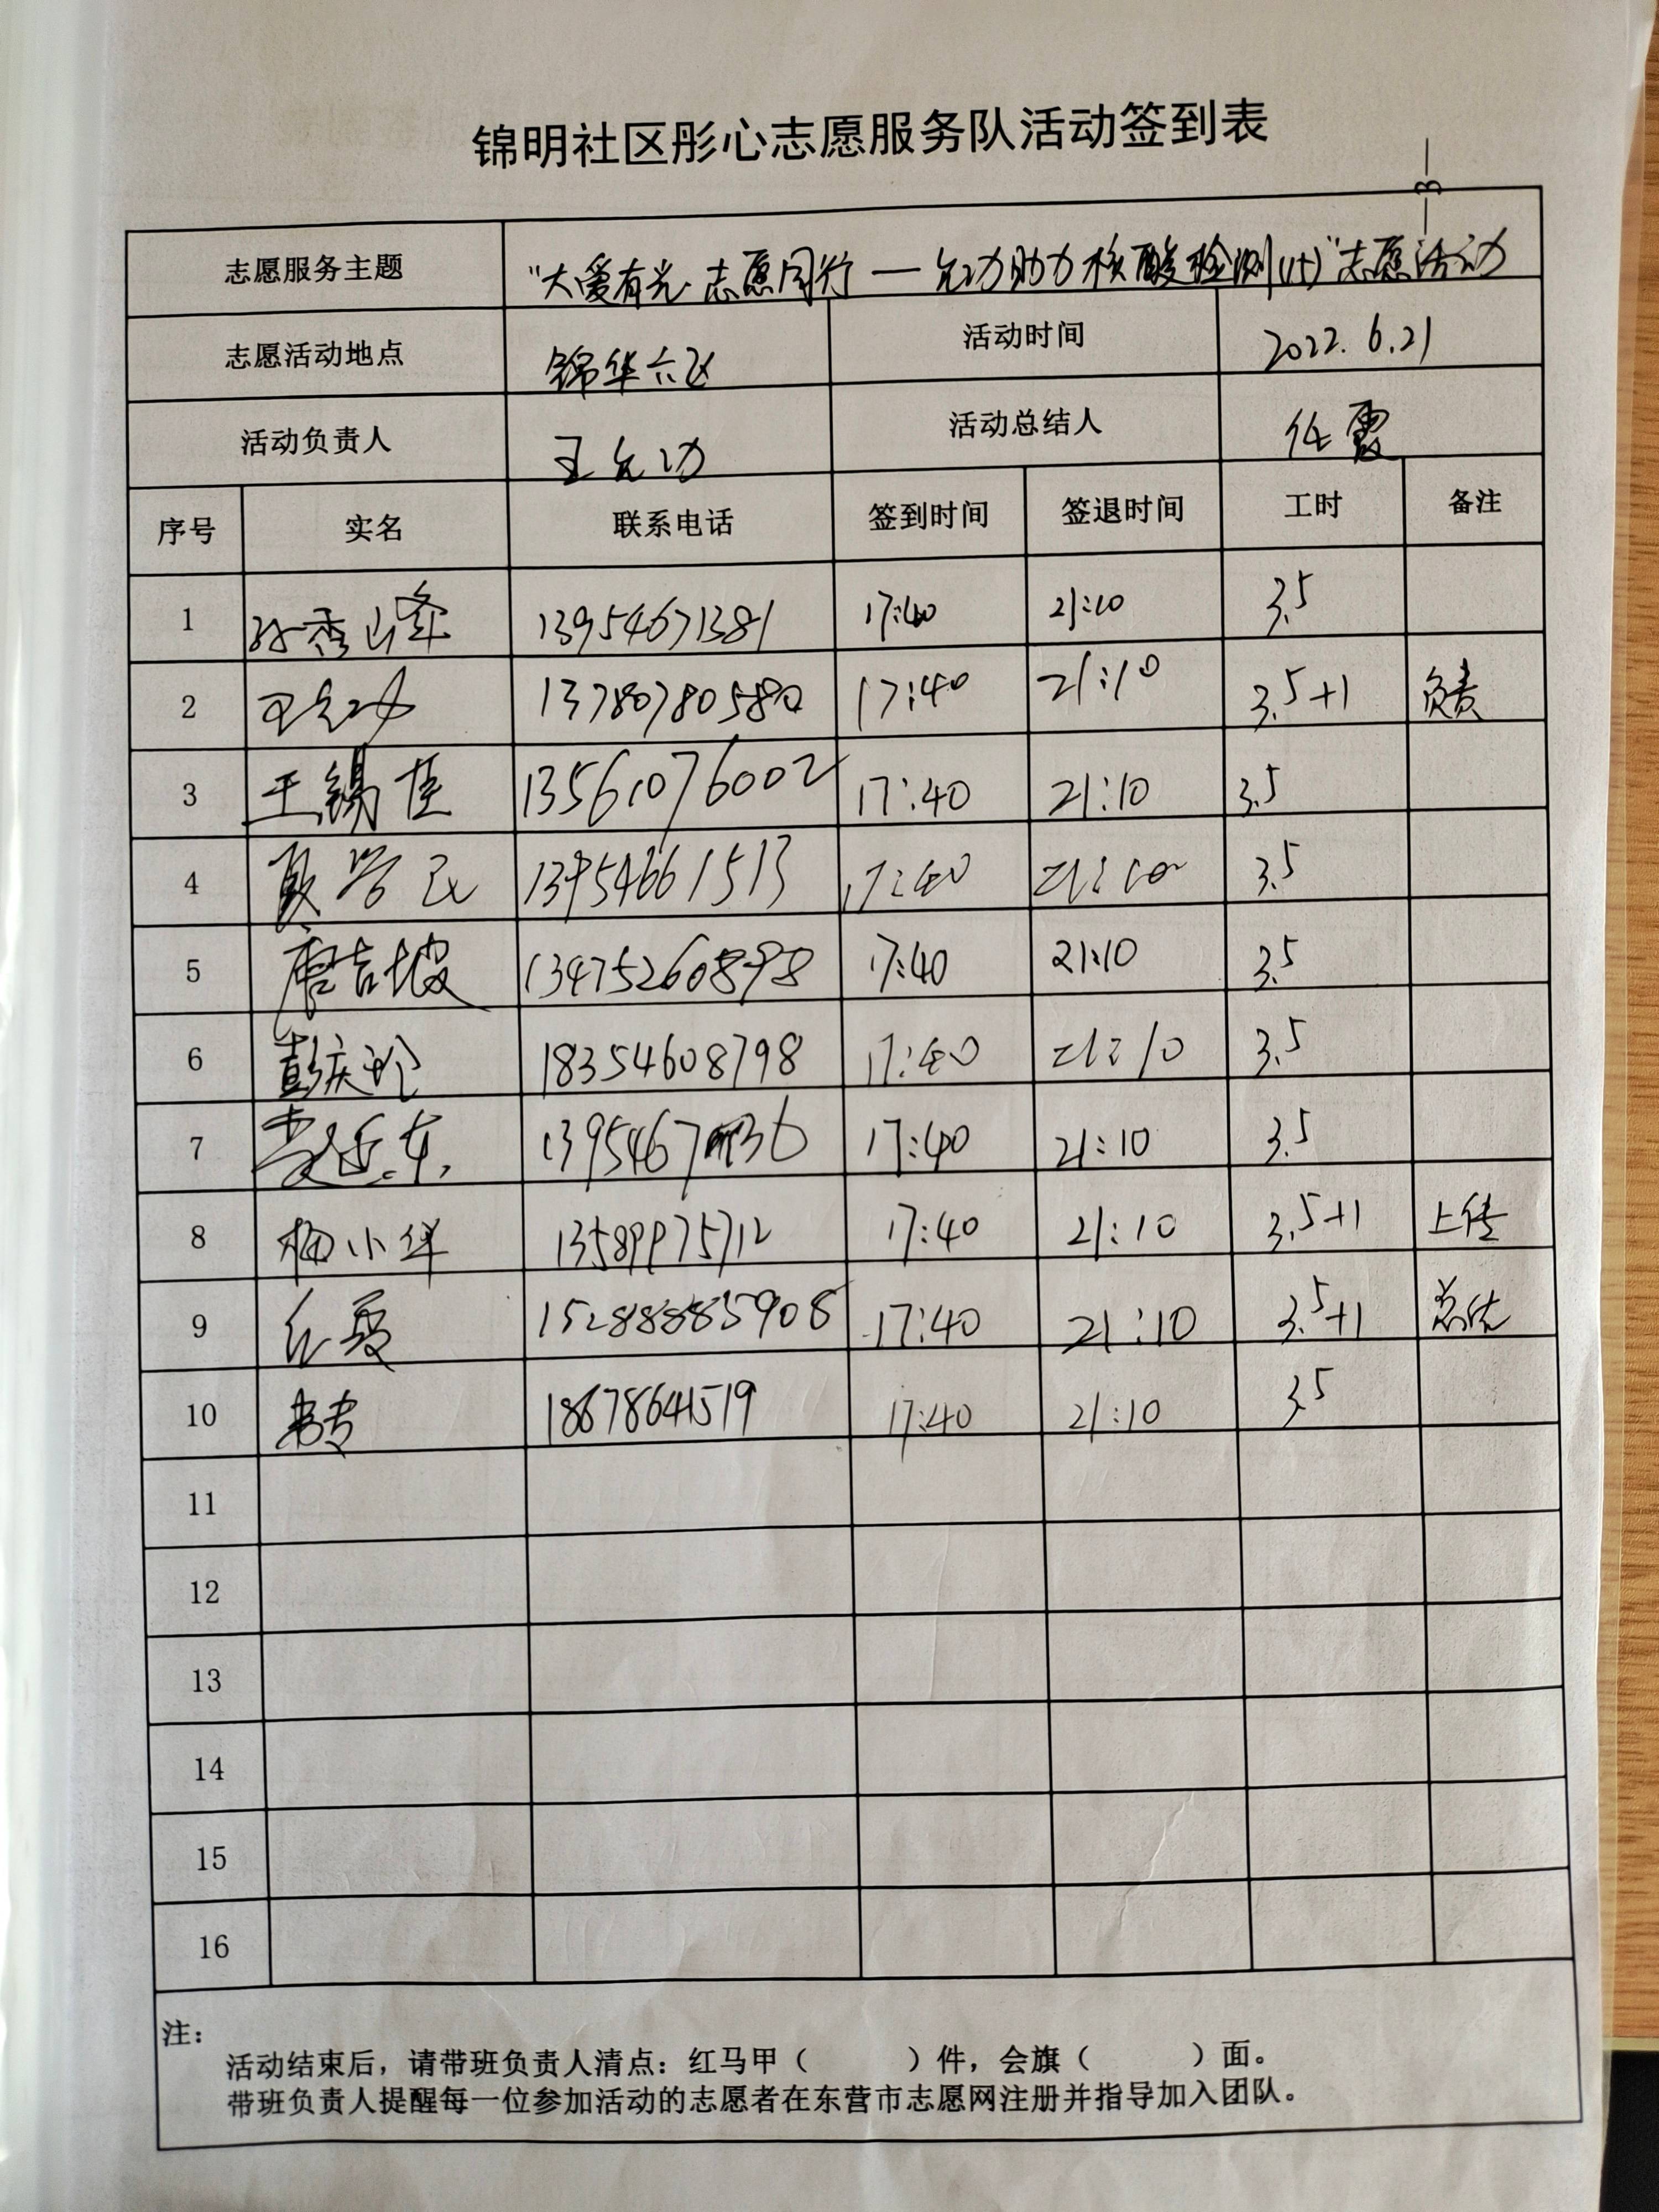 锦明社区彤心志愿服务队活动签到表
—3—
志愿服务主题 "大爱有光 志愿同行 — 允功助力核酸检测(十)"志愿活动
志愿活动地点 锦华六区 活动时间 2022.6.21
活动负责人 王允功 活动总结人 任霞
序号 实名 联系电话 签到时间 签退时间 工时 备注
1 孙秀峰 13954671381 17:40 21:10 3.5
2 王允功 13780780580 17:40 21:10 3.5+1 负责
3 王锡臣 13561076002 17:40 21:10 3.5
4 13954661513 17:40 21:10 3.5
5 唐吉坡 13475260898 17:40 21:10 3.5
6 彭庆 18354608798 17:40 21:10 3.5
7 李延东 17:40 21:10 3.5
8 梅小华 13589975712 17:40 21:10 3.5+1 上传
9 任霞 17:40 21:10 3.5+1 总结
10 18678641519 17:40 21:10 3.5
11
12
13
14
15
16
注：
活动结束后，请带班负责人清点：红马甲（ ）件，会旗（ ）面。
带班负责人提醒每一位参加活动的志愿者在东营市志愿网注册并指导加入团队。